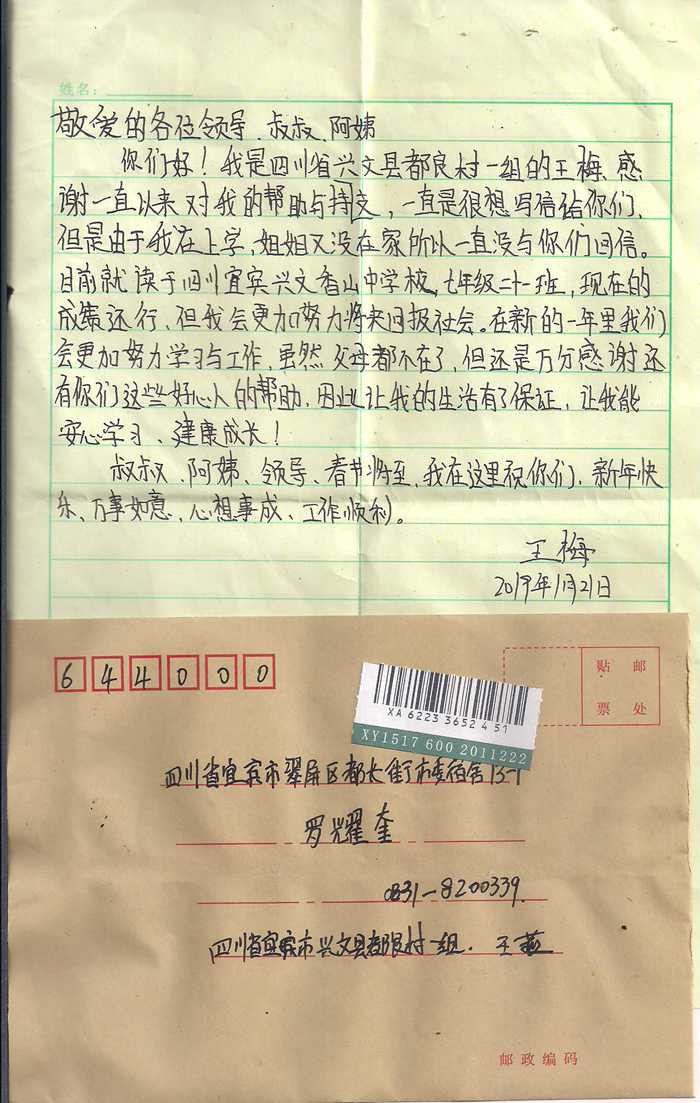 姓名:
敬爱的各位领导、叔叔、阿姨
你们好！我是四川省兴文县都良村一组的王梅、感
谢一直以来对我的帮助与持支，一直是很想写信给你们，
但是由于我在上学，姐姐又没在家所以一直没与你们回信。
目前就读于四川宜宾兴文香山中学校，七年级二十一班，现在的
成绩还行，但我会更加努力将来回报社会。在新的一年里我们
会更加努力学习与工作，虽然父母都不在了，但还是万分感谢还
有你们这些好心人的帮助，因此让我的生活有了保证，让我能
安心学习、健康成长！
叔叔、阿姨、领导、春节将至，我在这里祝你们，新年快
乐、万事如意、心想事成、工作顺利。
王梅
2019年1月21日
644000
贴 邮
票 处
XA 6223 3652 4 51
XY1517 600 2011222
四川省宜宾市翠屏区都长街市委宿舍13-1
罗耀奎
0831-8200339.
四川省宜宾市兴文县都良村一组. 王
邮政编码